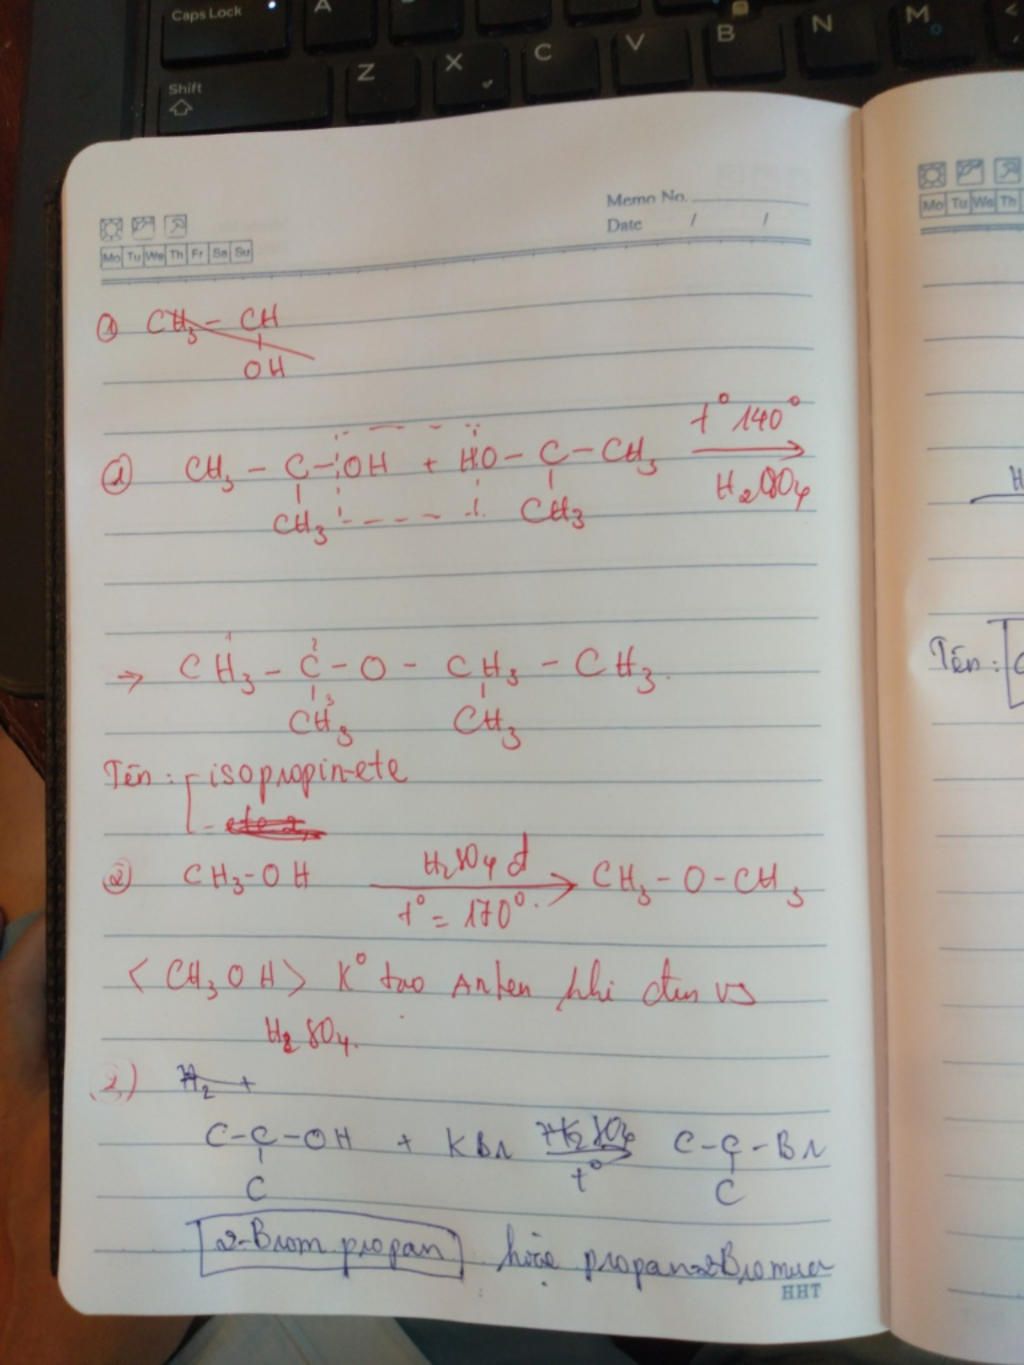 Caps Lock A
Shift Z X C V B N M <
Memo No.
Date / /
Mo Tu We Th Fr Sa Su
Mo Tu We Th
① CH₃ - CH
OH
① CH₃ - C - OH + HO - C - CH₃ t° 140°
CH₃ CH₃ H₂SO₄
→ CH₃ - C - O - CH₃ - CH₃.
1 2
3
CH₃ CH₃
Tên: - isopropin-ete
- ete 2,
② CH₃-OH H₂SO₄ đ CH₃-O-CH₃
t° = 170°.
< CH₃OH > K° tạo Anken khi đun vs
H₂SO₄.
2) H₂ +
C-C-OH + KBr H₂SO₄ C-C-Br
C t° C
2-Brom propan hoặc propan-2Bromua
HHT
H
Tên: C